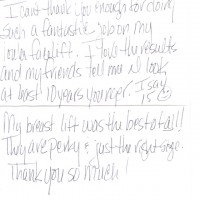 I can't thank you enough for doing
such a fantastic job on my
facelift. I love the results
and my friends tell me I look
at least 10 years younger. I say
15 ☺
My breast lift was the best of all!!
They are perky & just the right size.
Thank you so much!